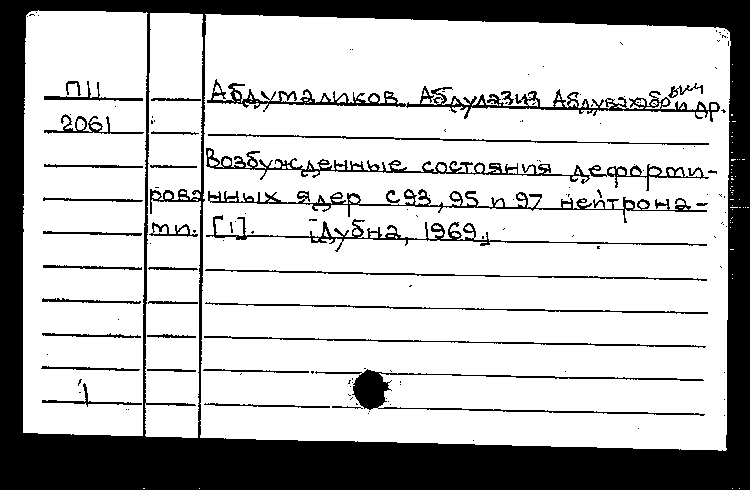 П11 Абдумаликов Абдулазиз Абдувахобович и др.
2061
Возбужденные состояния деформи-
рованных ядер с 93, 95 и 97 нейтрона-
ми. [1]. [Дубна, 1969.]
1